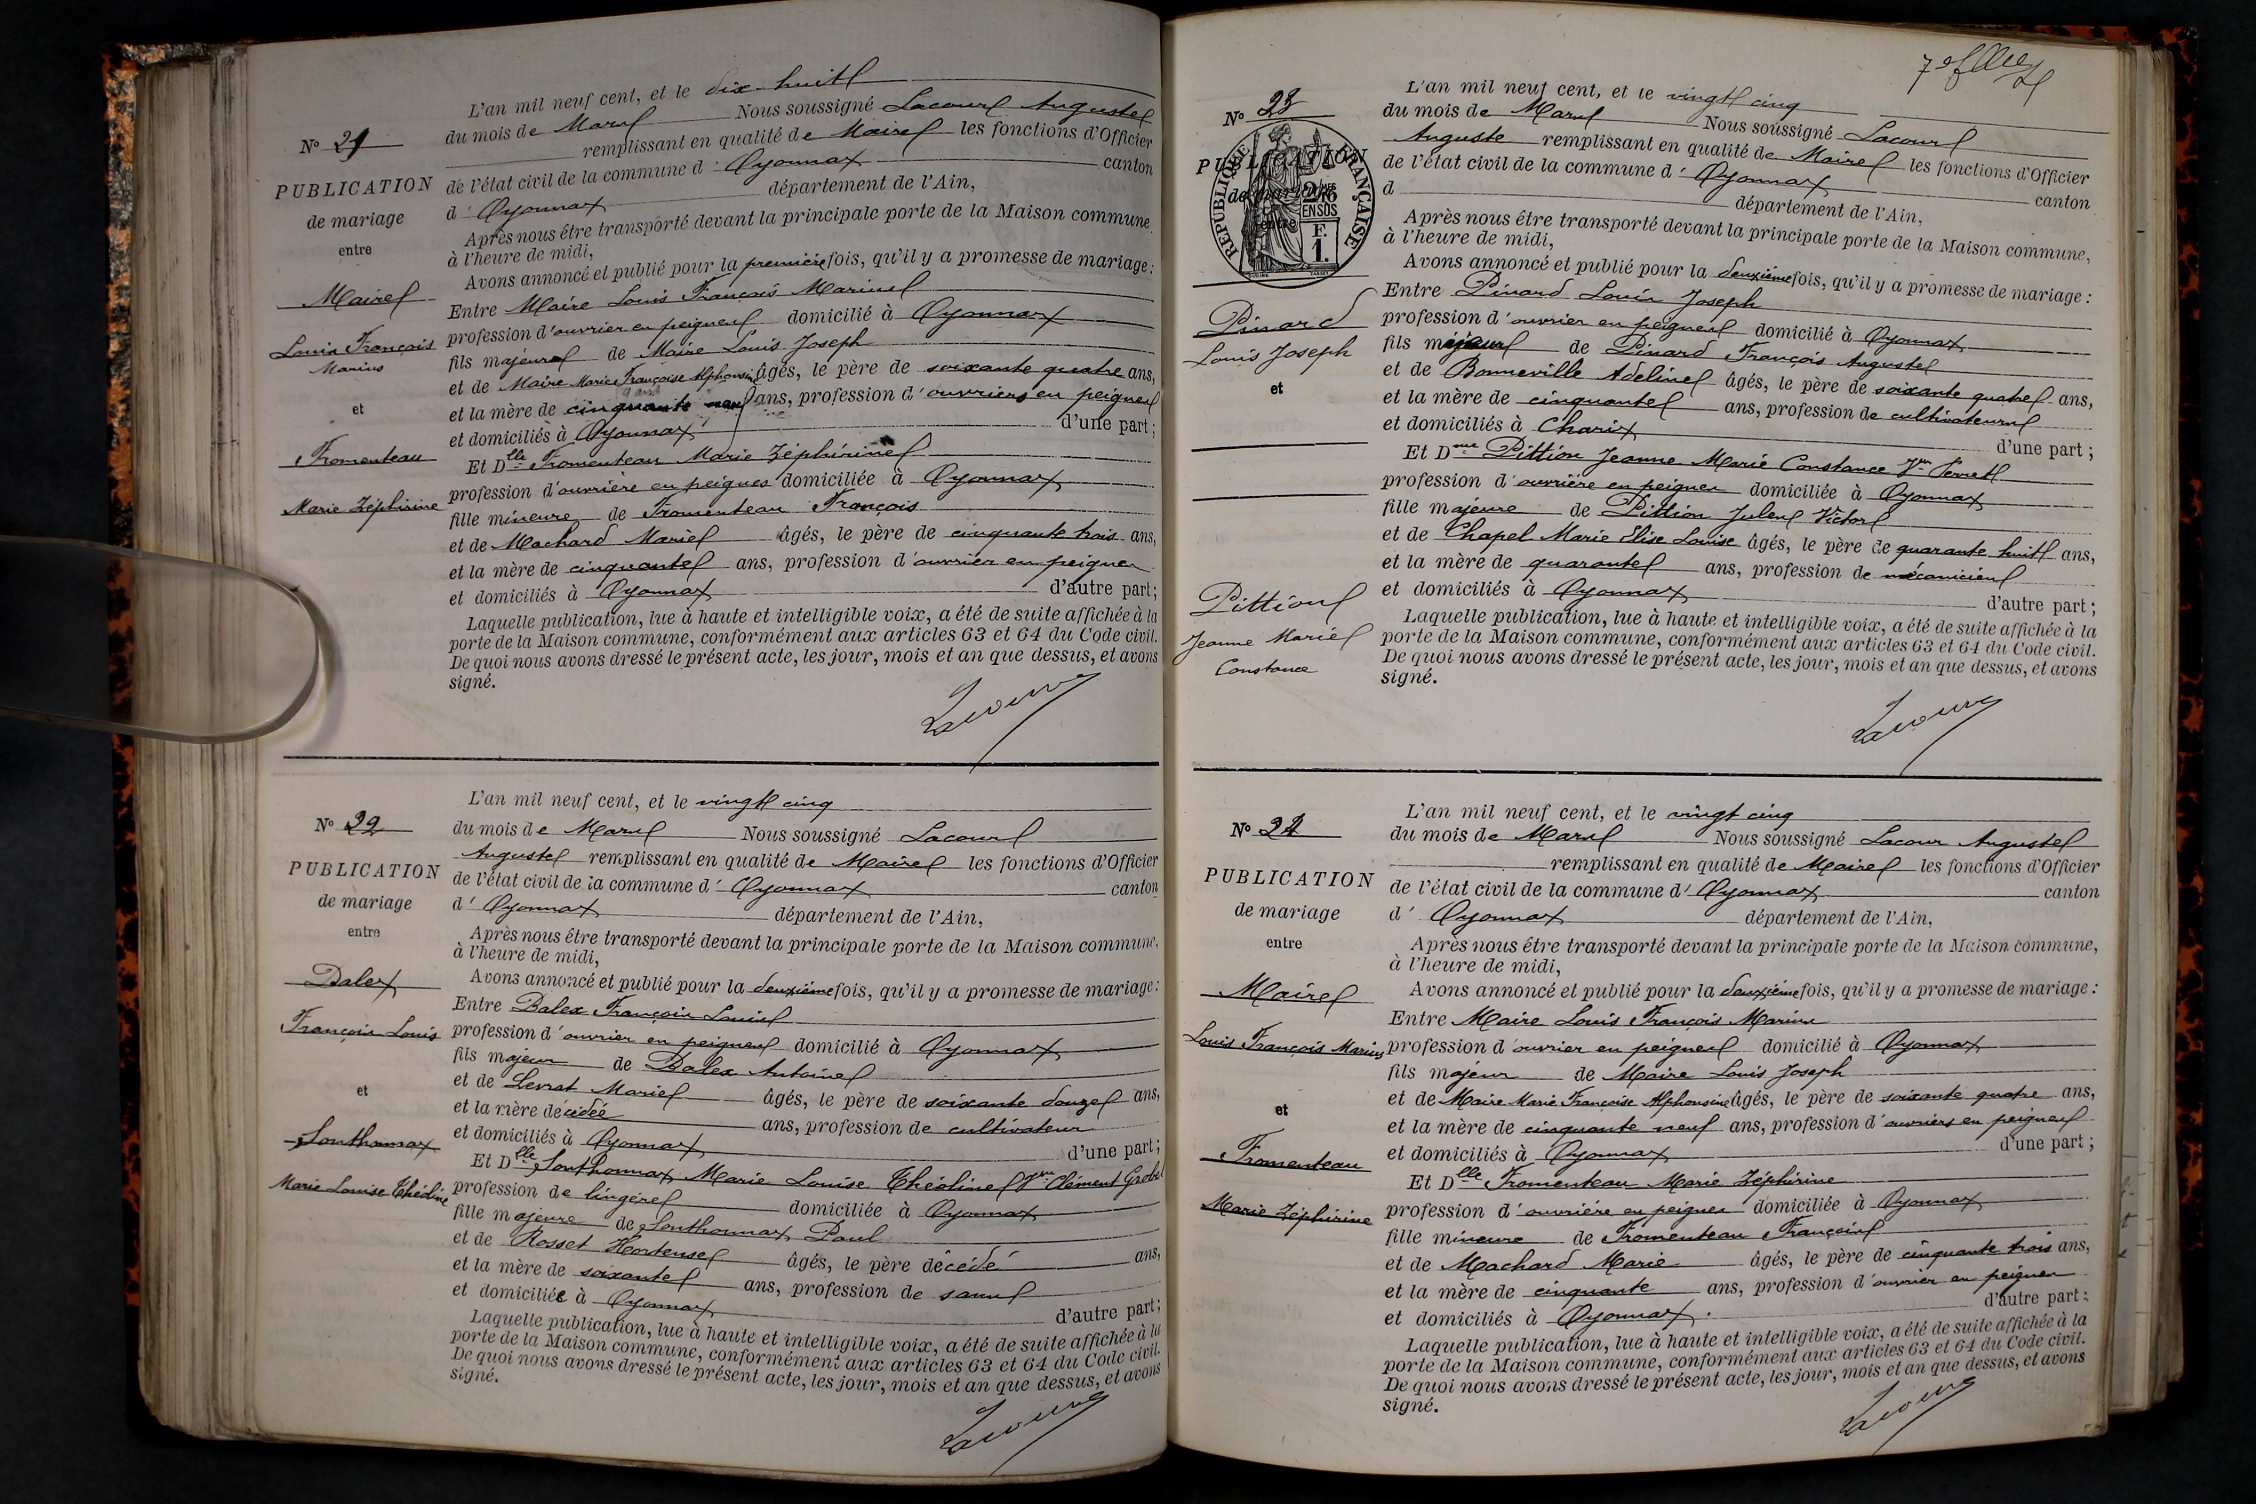 L'an mil neuf cent, et le dix-huit
N° 21
du mois de Mars Nous soussigné Lacour Auguste
remplissant en qualité de Maire les fonctions d'Officier
PUBLICATION
de mariage
entre
de l'état civil de la commune d' Oyonnax canton
d' Oyonnax département de l'Ain,
Après nous être transporté devant la principale porte de la Maison commune,
à l'heure de midi,
Avons annoncé et publié pour la première fois, qu'il y a promesse de mariage:
Maire
Louis François
Marius
et
Fromenteau
Marie Zéphirine
Entre Maire Louis François Marius
profession d'ouvrier en peignes domicilié à Oyonnax
fils majeur de Maire Louis Joseph
et de Maire Marie Françoise Alphonsine âgés, le père de soixante quatre ans,
et la mère de cinquante neuf ans, profession d'ouvriers en peignes
et domiciliés à Oyonnax d'une part;
Et Dlle Fromenteau Marie Zéphirine
profession d'ouvrière en peignes domiciliée à Oyonnax
fille mineure de Fromenteau François
et de Machard Marie âgés, le père de cinquante trois ans,
et la mère de cinquante ans, profession d'ouvrier en peignes
et domiciliés à Oyonnax d'autre part;
Laquelle publication, lue à haute et intelligible voix, a été de suite affichée à la
porte de la Maison commune, conformément aux articles 63 et 64 du Code civil.
De quoi nous avons dressé le présent acte, les jour, mois et an que dessus, et avons
signé.
Lacour
L'an mil neuf cent, et le vingt cinq
N° 22
du mois de Mars Nous soussigné Lacour
Auguste remplissant en qualité de Maire les fonctions d'Officier
PUBLICATION
de mariage
entre
de l'état civil de la commune d' Oyonnax canton
d' Oyonnax département de l'Ain,
Après nous être transporté devant la principale porte de la Maison commune,
à l'heure de midi,
Avons annoncé et publié pour la deuxième fois, qu'il y a promesse de mariage:
Balex
François Louis
et
Sonthonnax
Marie Louise Théoline
Entre Balex François Louis
profession d'ouvrier en peignes domicilié à Oyonnax
fils majeur de Balex Antoine
et de Levrat Marie âgés, le père de soixante douze ans,
et la mère décédée ans, profession de cultivateur
et domiciliés à Oyonnax d'une part;
Et Dlle Sonthonnax Marie Louise Théoline Vve Clément Grobel
profession de lingère domiciliée à Oyonnax
fille majeure de Sonthonnax Paul
et de Rosset Hortense âgés, le père décédé ans,
et la mère de soixante ans, profession de sans
et domiciliée à Oyonnax d'autre part;
Laquelle publication, lue à haute et intelligible voix, a été de suite affichée à la
porte de la Maison commune, conformément aux articles 63 et 64 du Code civil.
De quoi nous avons dressé le présent acte, les jour, mois et an que dessus, et avons
signé.
Lacour
L'an mil neuf cent, et le vingt cinq
N° 23
du mois de Mars Nous soussigné Lacour
Auguste remplissant en qualité de Maire les fonctions d'Officier
PUBLICATION
de mariage
entre
RÉPUBLIQUE FRANÇAISE
2/10
EN SUS
F.
1.
de l'état civil de la commune d' Oyonnax canton
d département de l'Ain,
Après nous être transporté devant la principale porte de la Maison commune,
à l'heure de midi,
Avons annoncé et publié pour la deuxième fois, qu'il y a promesse de mariage:
Pinard
Louis Joseph
et
Pittion
Jeanne Marie
Constance
Entre Pinard Louis Joseph
profession d'ouvrier en peignes domicilié à Oyonnax
fils majeur de Pinard François Auguste
et de Bonneville Adeline âgés, le père de soixante quatre ans,
et la mère de cinquante ans, profession de cultivateurs
et domiciliés à Charix d'une part;
Et Dme Pittion Jeanne Marie Constance Vve Perret
profession d'ouvrière en peignes domiciliée à Oyonnax
fille majeure de Pittion Jules Victor
et de Chapel Marie Elise Louise âgés, le père de quarante huit ans,
et la mère de quarante ans, profession de mécanicien
et domiciliés à Oyonnax d'autre part;
Laquelle publication, lue à haute et intelligible voix, a été de suite affichée à la
porte de la Maison commune, conformément aux articles 63 et 64 du Code civil.
De quoi nous avons dressé le présent acte, les jour, mois et an que dessus, et avons
signé.
Lacour
L'an mil neuf cent, et le vingt cinq
N° 24
du mois de Mars Nous soussigné Lacour Auguste
remplissant en qualité de Maire les fonctions d'Officier
PUBLICATION
de mariage
entre
de l'état civil de la commune d' Oyonnax canton
d' Oyonnax département de l'Ain,
Après nous être transporté devant la principale porte de la Maison commune,
à l'heure de midi,
Avons annoncé et publié pour la deuxième fois, qu'il y a promesse de mariage:
Maire
Louis François Marius
et
Fromenteau
Marie Zéphirine
Entre Maire Louis François Marius
profession d'ouvrier en peignes domicilié à Oyonnax
fils majeur de Maire Louis Joseph
et de Maire Marie Françoise Alphonsine âgés, le père de soixante quatre ans,
et la mère de cinquante neuf ans, profession d'ouvriers en peignes
et domiciliés à Oyonnax d'une part;
Et Dlle Fromenteau Marie Zéphirine
profession d'ouvrière en peignes domiciliée à Oyonnax
fille mineure de Fromenteau François
et de Machard Marie âgés, le père de cinquante trois ans,
et la mère de cinquante ans, profession d'ouvrier en peignes
et domiciliés à Oyonnax d'autre part;
Laquelle publication, lue à haute et intelligible voix, a été de suite affichée à la
porte de la Maison commune, conformément aux articles 63 et 64 du Code civil.
De quoi nous avons dressé le présent acte, les jour, mois et an que dessus, et avons
signé.
Lacour